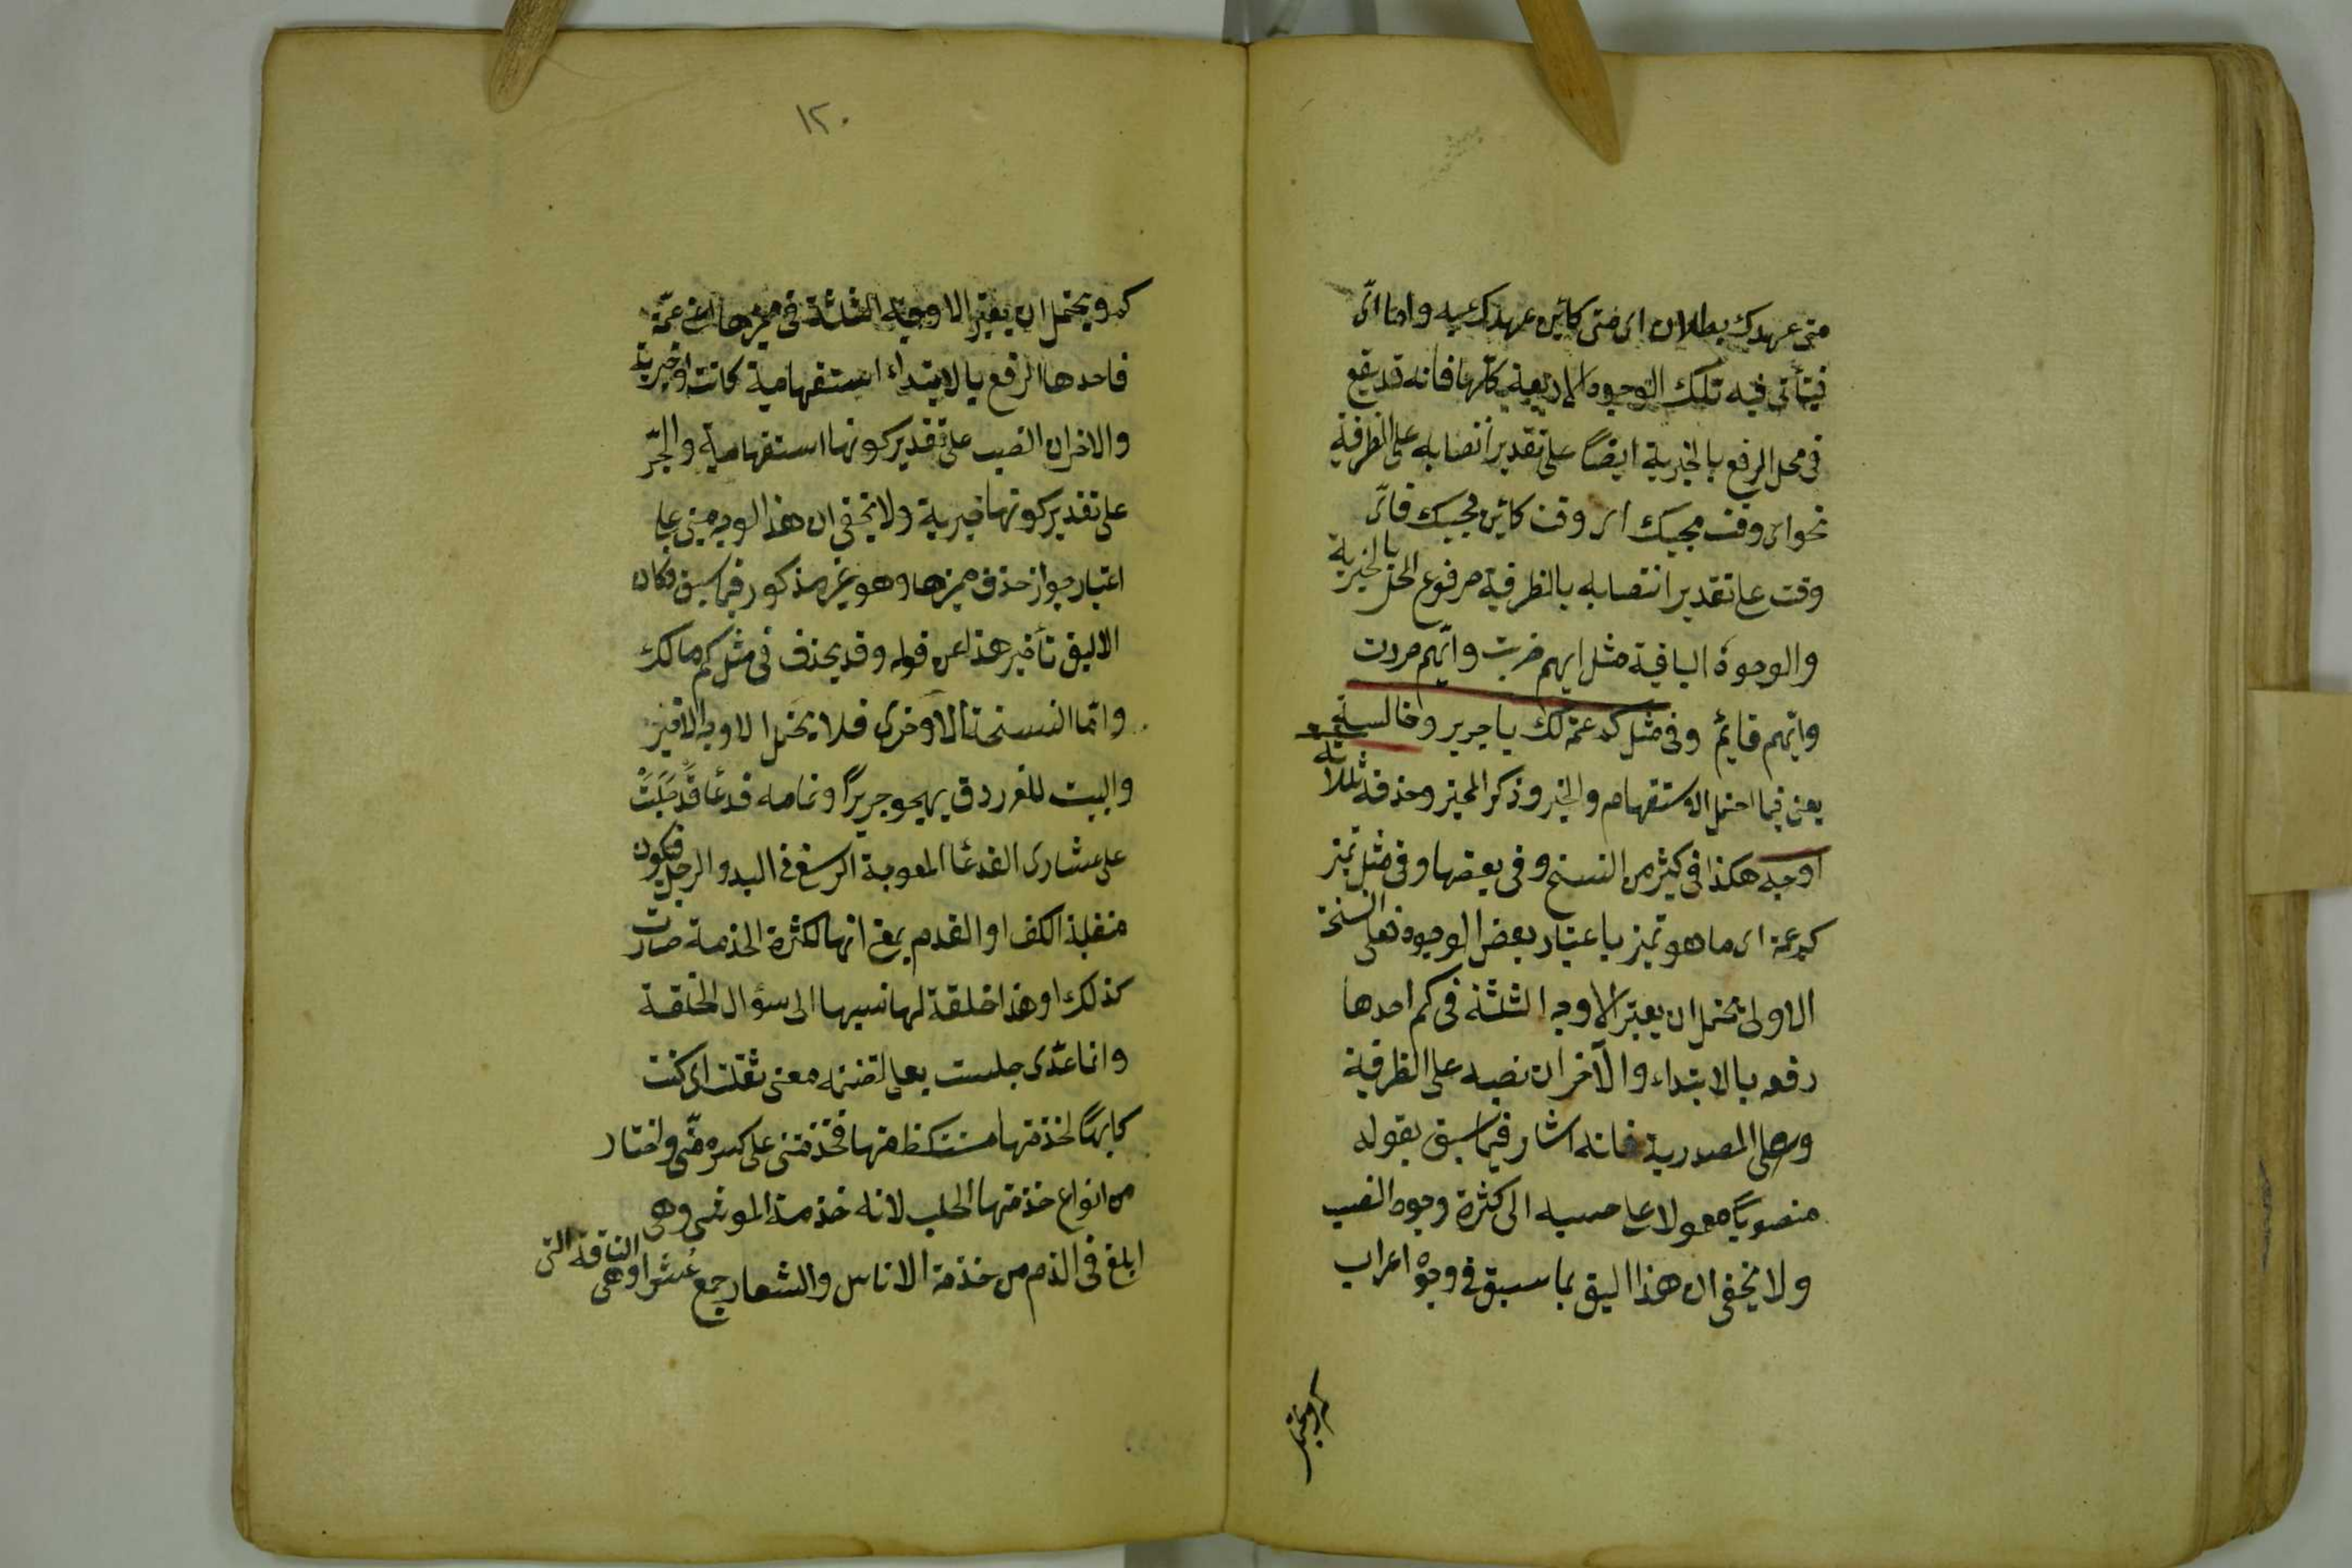 متى عهدك بطلان اى متى كائن عهدك به واما اىّ
فيتأتى فيه تلك الوجوه الاربعة كلها فانه قد يقع
فى محل الرفع بالخبرية ايضًا على تقدير انتصابه على الظرفية
نحو اى وقت مجيئك اى وقت كائن مجيئك فاىّ
وقت على تقدير انتصابه بالظرفية مرفوع المحل بالخبرية
والوجوه الباقية مثل ايهم ضربت وايّهم مررت
وايّهم قايم وفى مثل كم عمة لك يا جرير وخالة يعنى
يعنى فيما احتمل الاستفهام والخبر وذكر المميز وحذفه ثلاثة
اوجه هكذا فى كثير من النسخ وفى بعضها وفى مثل تميز
كم عمة اى ما هو تميز باعتبار بعض الوجوه فعلى النسخة
الاولى يحتمل ان يعتبر الاوجه الثلثة فى كم احدها
رفعه بالابتداء والآخران نصبه على الظرفية
وعلى المصدرية فانه اشار فيما سبق بقوله
منصوبًا معمولا على حسبه الى كثرة وجوه النصب
ولا يخفى ان هذا اليق بما سبق فى وجوه اعراب
كم ويحتمل
١٢٠
كم ويحتمل ان يعتبر الاوجه الثلثة فى مميزها اعنى عمّة
فاحدها الرفع بالابتداء استفهامية كانت او خبرية
والاخران النصب على تقدير كونها استفهامية والجرّ
على تقدير كونها خبرية ولا يخفى ان هذا الوجه مبنى على
اعتبار جواز حذف مميزها وهو غير مذكور فيما سبق فكان
الاليق تأخير هذا عن قوله وقد يحذف فى مثل كم مالك
وامّا النسخة الاخرى فلا يحتمل الا الوجه الاخير
والبيت للفرزدق يهجو جريرًا وتمامه فدعا قد حلبت
على عشارى الفدعا المعوجة الرسغ فى اليد والرجل فتكون
منقلبة الكف او القدم يعنى انها لكثرة الخدمة صارت
كذلك او هذا خلقة لها نسبها الى سؤال الخلقة
وانما عدّى حلبت بعلى لتضمنه معنى ثقلت اى كنت
كارهًا لخدمتها مستنكفا منها فخدمتنى على كره منّى واختار
من انواع خدمتها الحلب لانه خدمة المواشى وهى
ابلغ فى الذم من خدمة الاناس والعشار جمع عشرا وهى الناقة التى